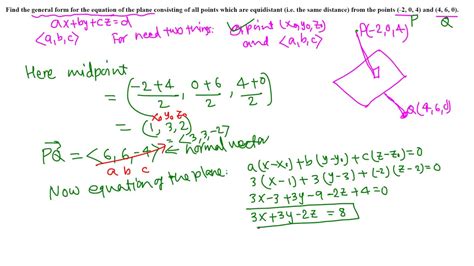 Find the general form for the equation of the plane consisting of all points which are equidistant (i.e. the same distance) from the points (-2, 0, 4) and (4, 6, 0).
P Q
ax+by+cz=d
<a,b,c>
For need two things:
point (x₀,y₀,z₀)
and <a,b,c>
P(-2,0,4)
Q(4,6,0)
Here midpoint
= (-2+4/2, 0+6/2, 4+0/2)
x₀ y₀ z₀
= (1, 3, 2)
<3,3,-2>
PQ = <6,6,-4> ← normal vector
a b c
Now equation of the plane:
a(x-x₁)+b(y-y₁)+c(z-z₁)=0
3(x-1)+3(y-3)+(-2)(z-2)=0
3x-3+3y-9-2z+4=0
3x+3y-2z=8